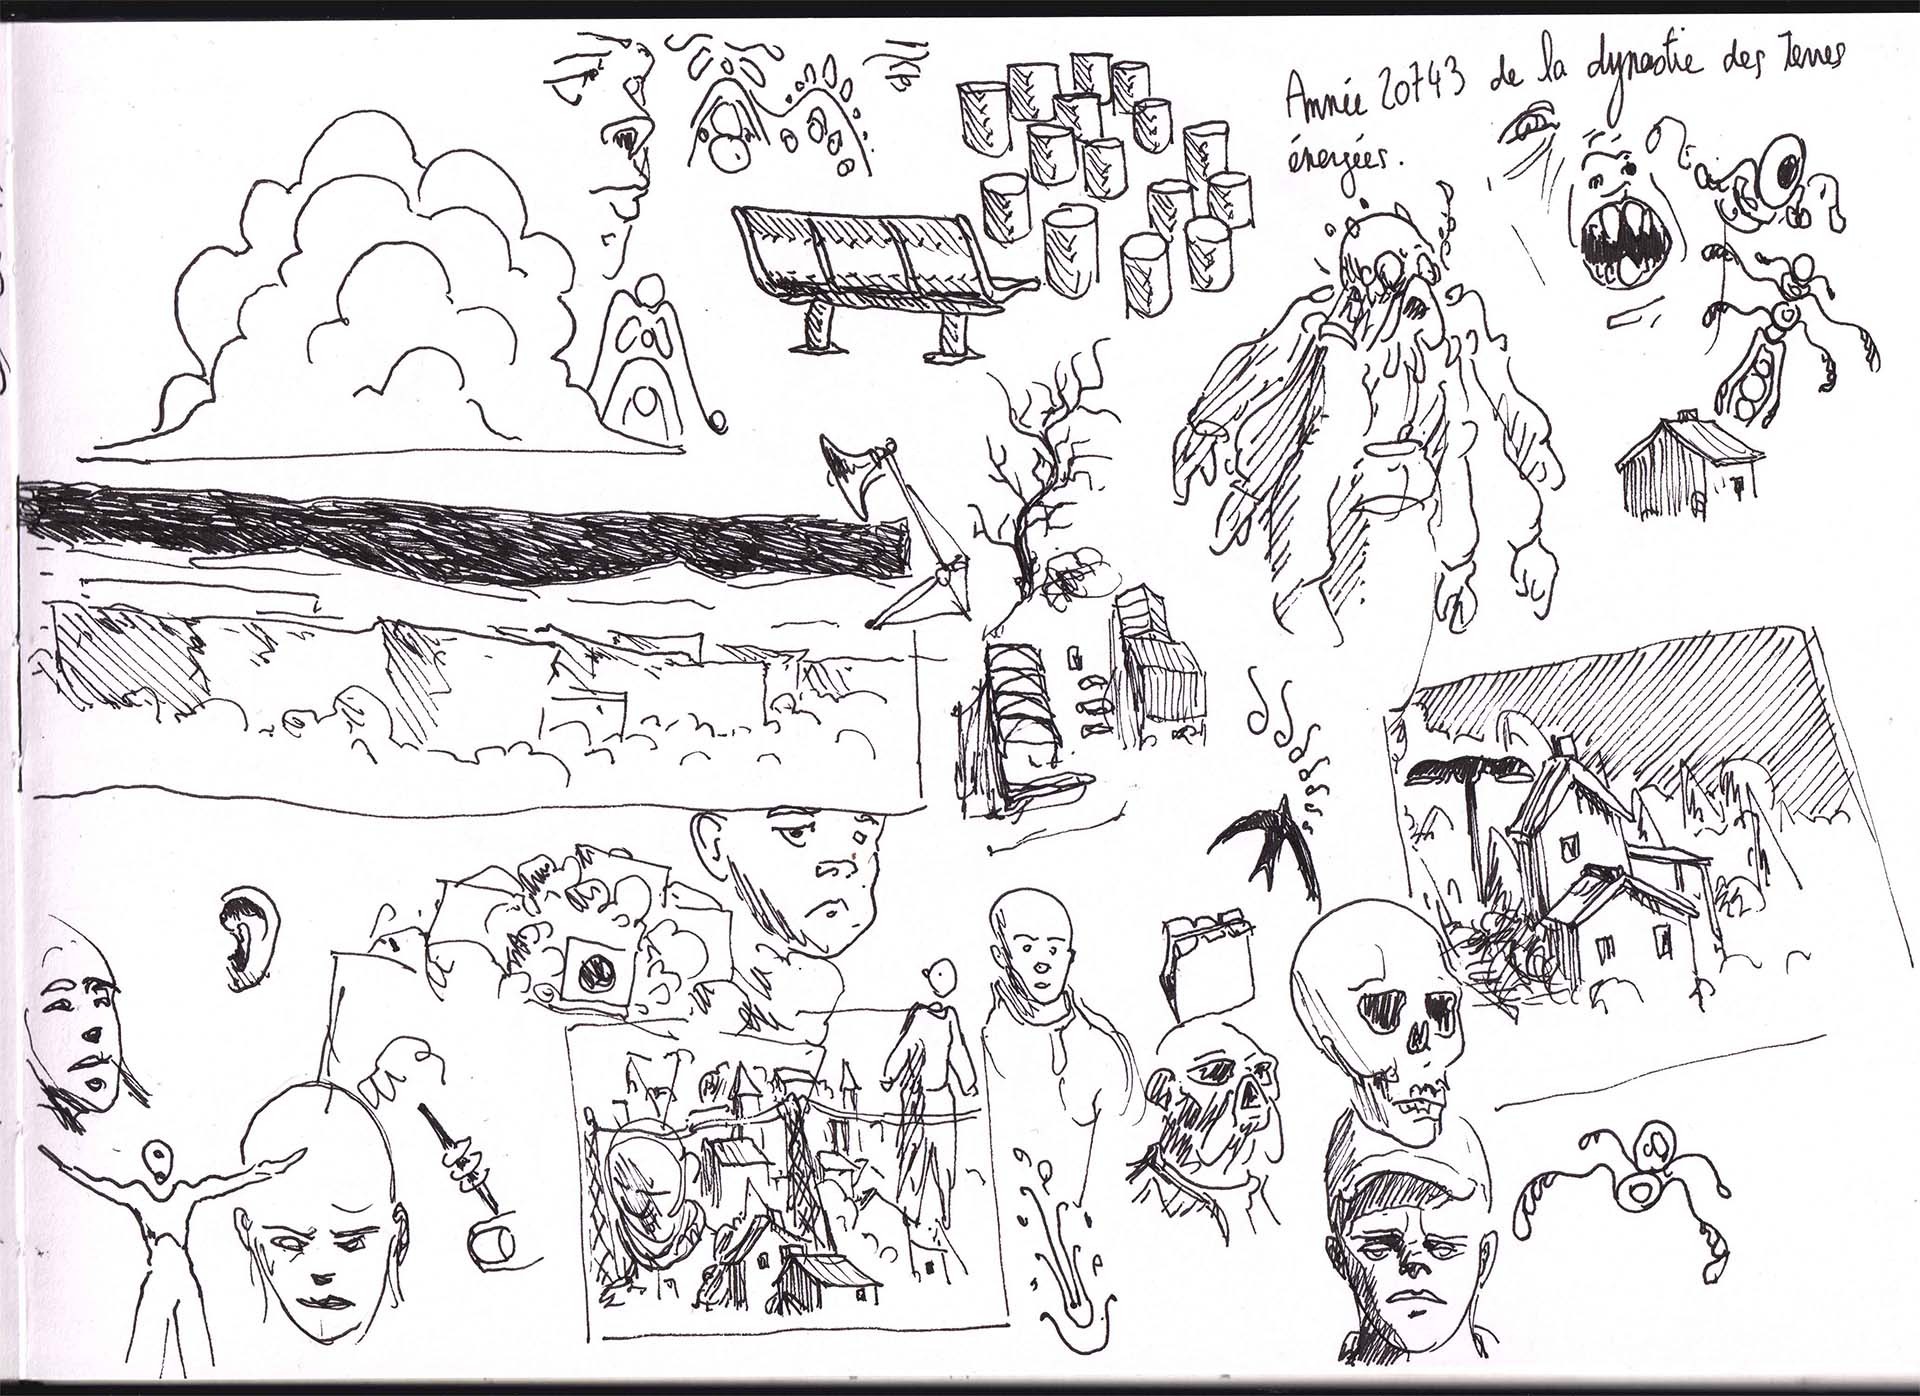 Année 20743 de la dynastie des Terres
énergées.